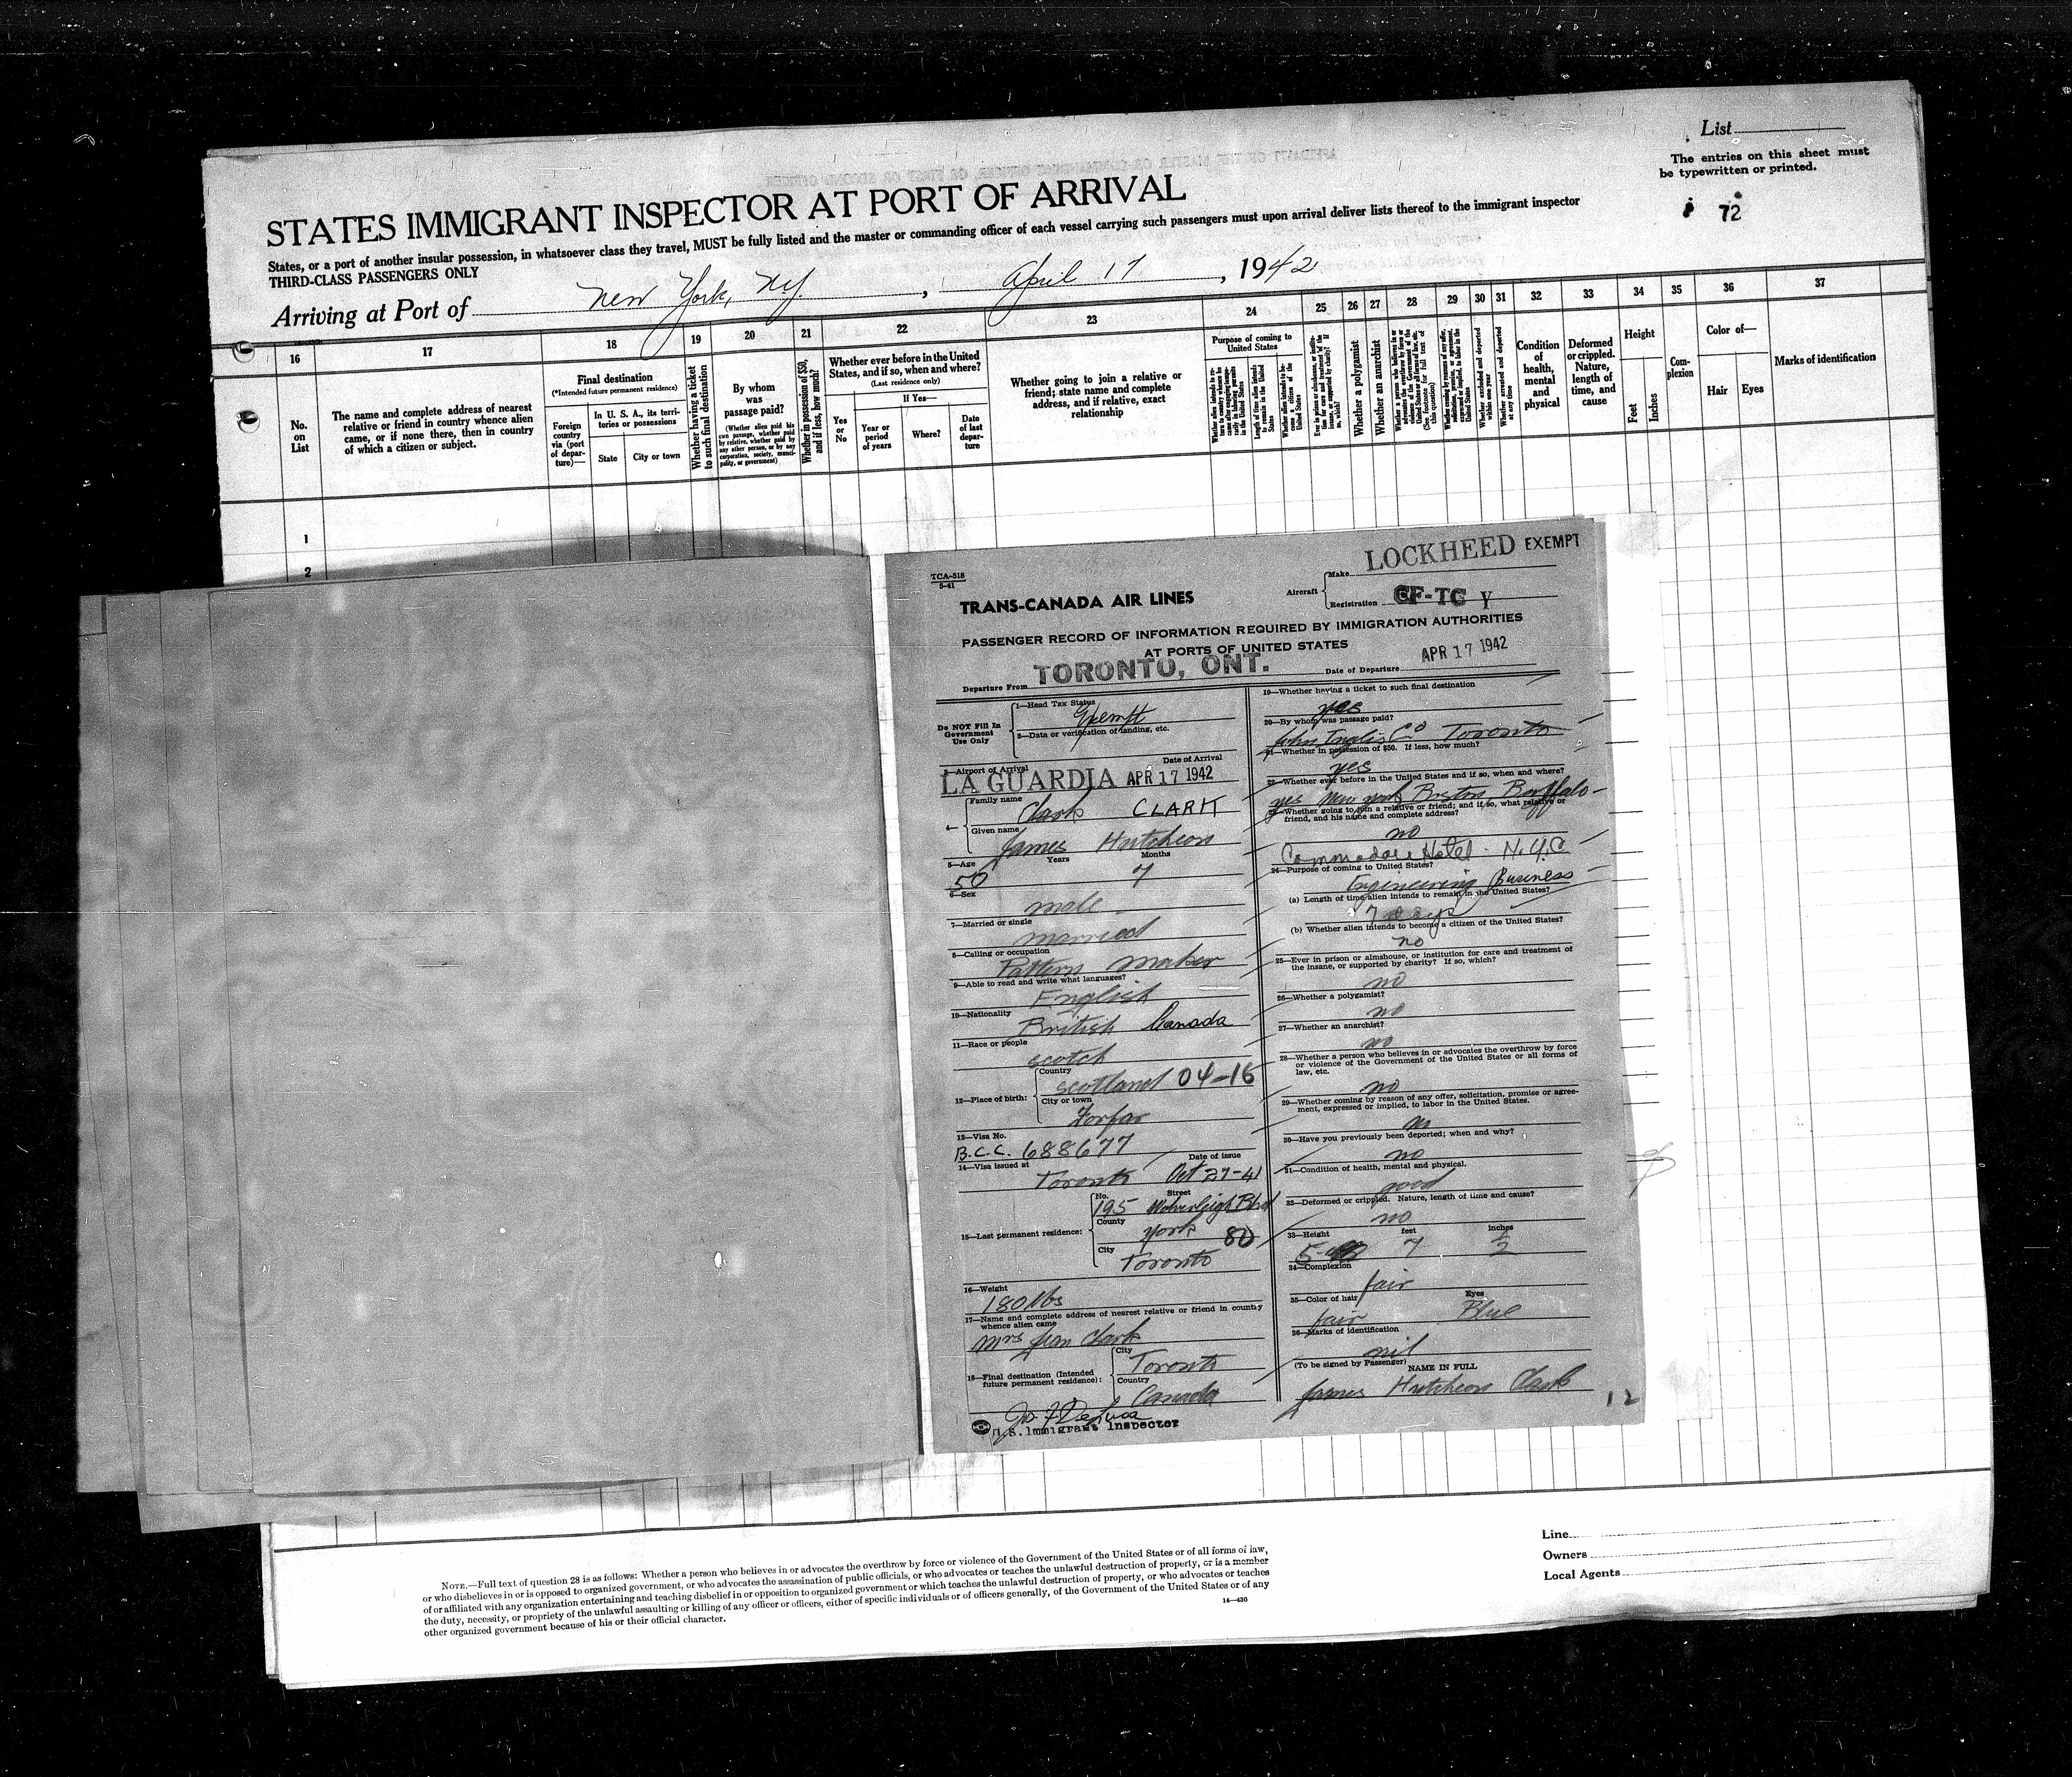 List
The entries on this sheet must
be typewritten or printed.
72
STATES IMMIGRANT INSPECTOR AT PORT OF ARRIVAL
States, or a port of another insular possession, in whatsoever class they travel, MUST be fully listed and the master or commanding officer of each vessel carrying such passengers must upon arrival deliver lists thereof to the immigrant inspector
THIRD-CLASS PASSENGERS ONLY
Arriving at Port of New York, NY. , April 17 , 1942
16 17 18 19 20 21 22 23 24 25 26 27 28 29 30 31 32 33 34 35 36 37
No. on List
The name and complete address of nearest relative or friend in country whence alien came, or if none there, then in country of which a citizen or subject.
Final destination
(*Intended future permanent residence)
Foreign country via (port of departure)—
In U. S. A., its territories or possessions
State
City or town
Whether having a ticket to such final destination
By whom was passage paid?
(Whether alien paid his own passage, whether paid by relative, whether paid by any other person, or by any corporation, society, municipality, or government)
Whether in possession of $50, and if less, how much?
Whether ever before in the United States, and if so, when and where?
(Last residence only)
Yes or No
If Yes—
Year or period of years
Where?
Date of last departure
Whether going to join a relative or friend; state name and complete address, and if relative, exact relationship
Purpose of coming to United States
Length of time alien intends to remain in the United States
Whether alien intends to become a citizen of the United States
Whether a polygamist
Whether an anarchist
(See footnote for full text of this question)
Whether excluded and deported within one year
Whether arrested and deported at any time
Condition of health, mental and physical
Deformed or crippled. Nature, length of time, and cause
Height
Feet
Inches
Complexion
Color of—
Hair
Eyes
Marks of identification
1
2
TCA-518
5-41
TRANS-CANADA AIR LINES
Aircraft
Make LOCKHEED EXEMPT
Registration CF-TC Y
PASSENGER RECORD OF INFORMATION REQUIRED BY IMMIGRATION AUTHORITIES
AT PORTS OF UNITED STATES
Departure From TORONTO, ONT. Date of Departure APR 17 1942
Do NOT Fill In Government Use Only
1—Head Tax Status
Exempt
2—Data or verification of landing, etc.
3—Airport of Arrival Date of Arrival
LA GUARDIA APR 17 1942
4— Family name
Clark CLARK
Given name
James Hutcheon
5—Age Years Months
50 7
6—Sex
male
7—Married or single
married
8—Calling or occupation
Pattern maker
9—Able to read and write what languages?
English
10—Nationality
British Canada
11—Race or people
scotch
12—Place of birth:
Country
scotland 04-16
City or town
Forfar
13—Visa No.
B.C.C. 688677
14—Visa issued at Date of issue
Toronto Oct 27-41
15—Last permanent residence:
No. Street
195 Woverleigh Blvd
County
York 80
City
Toronto
16—Weight
180 lbs
17—Name and complete address of nearest relative or friend in country whence alien came
Mrs Jean Clark
18—Final destination (Intended future permanent residence):
City
Toronto
Country
Canada
Jos. F DeLuca
U.S. Immigrant Inspector
19—Whether having a ticket to such final destination
yes
20—By whom was passage paid?
John Inglis Co Toronto
21—Whether in possession of $50. If less, how much?
yes
22—Whether ever before in the United States and if so, when and where?
yes New York Boston, Buffalo
23—Whether going to join a relative or friend; and if so, what relative or friend, and his name and complete address?
no
Commodore Hotel - N.Y.C
24—Purpose of coming to United States?
Engineering Business
(a) Length of time alien intends to remain in the United States?
7 days
(b) Whether alien intends to become a citizen of the United States?
no
25—Ever in prison or almshouse, or institution for care and treatment of the insane, or supported by charity? If so, which?
no
26—Whether a polygamist?
no
27—Whether an anarchist?
no
28—Whether a person who believes in or advocates the overthrow by force or violence of the Government of the United States or all forms of law, etc.
no
29—Whether coming by reason of any offer, solicitation, promise or agreement, expressed or implied, to labor in the United States.
no
30—Have you previously been deported; when and why?
no
31—Condition of health, mental and physical.
good
32—Deformed or crippled. Nature, length of time and cause?
no
33—Height feet inches
5 7 1/2
34—Complexion
fair
35—Color of hair Eyes
fair Blue
36—Marks of identification
nil
(To be signed by Passenger) NAME IN FULL
James Hutcheon Clark
12
NOTE.—Full text of question 28 is as follows: Whether a person who believes in or advocates the overthrow by force or violence of the Government of the United States or of all forms of law,
or who disbelieves in or is opposed to organized government, or who advocates the assassination of public officials, or who advocates or teaches the unlawful destruction of property, or is a member
of or affiliated with any organization entertaining and teaching disbelief in or opposition to organized government or which teaches the unlawful destruction of property, or who advocates or teaches
the duty, necessity, or propriety of the unlawful assaulting or killing of any officer or officers, either of specific individuals or of officers generally, of the Government of the United States or of any
other organized government because of his or their official character.
14—430
Line
Owners
Local Agents